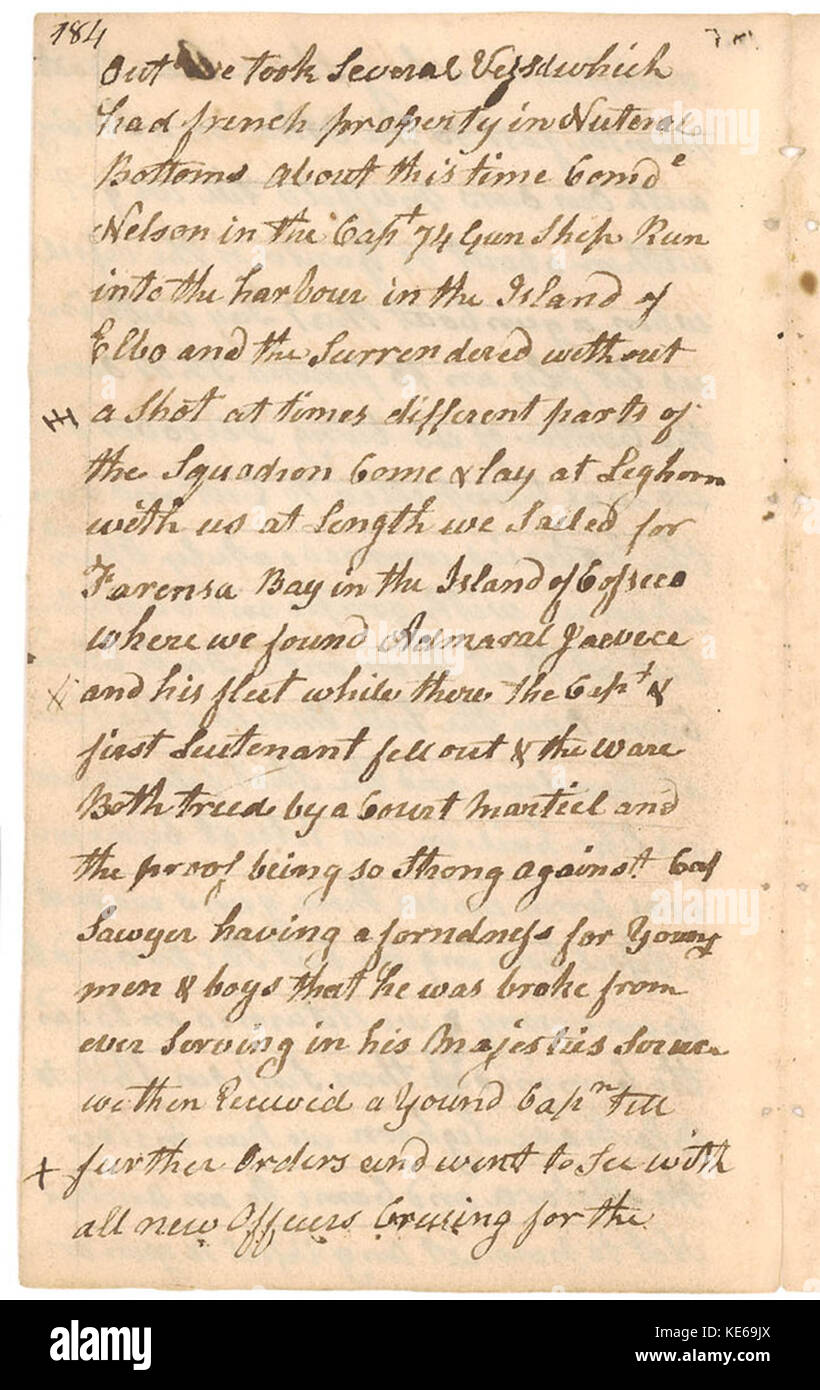 184
Out we took Several Vessd which
had french property in Nuteral
Bottoms about this time Comd^e
Nelson in the Cap^t 74 Gun Ship Run
into the harbour in the Island of
Elbo and the Surrendered without
a Shot at times different parts of
the Squadron Come & lay at Leghorn
with us at Length we Sailed for
Farensa Bay in the Island of
where we found Admaral Jaevece
and his fleet while there the Cap^t &
first Leutenant fell out & the ware
Both treed by a Court Martiel and
the proof being so Strong against Cap
Sawyer having a forndness for Young
men & boys that he was broke from
ever Serving in his Majesties
we then Receivid a Yound Cap^n till
further Orders and went to See with
all new Officers Crusing for the
alamy
alamy
alamy
alamy
a
a
alamy stock photo
KE69JX
www.alamy.com